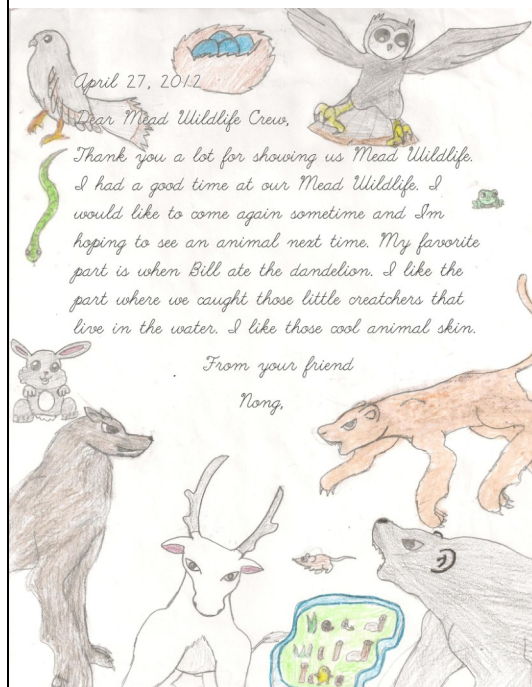 April 27, 2012
Dear Mead Wildlife Crew,
Thank you a lot for showing us Mead Wildlife.
I had a good time at our Mead Wildlife. I
would like to come again sometime and Im
hoping to see an animal next time. My favorite
part is when Bill ate the dandelion. I like the
part where we caught those little creatchers that
live in the water. I like those cool animal skin.
From your friend
Nong,
Mead
Wild
life